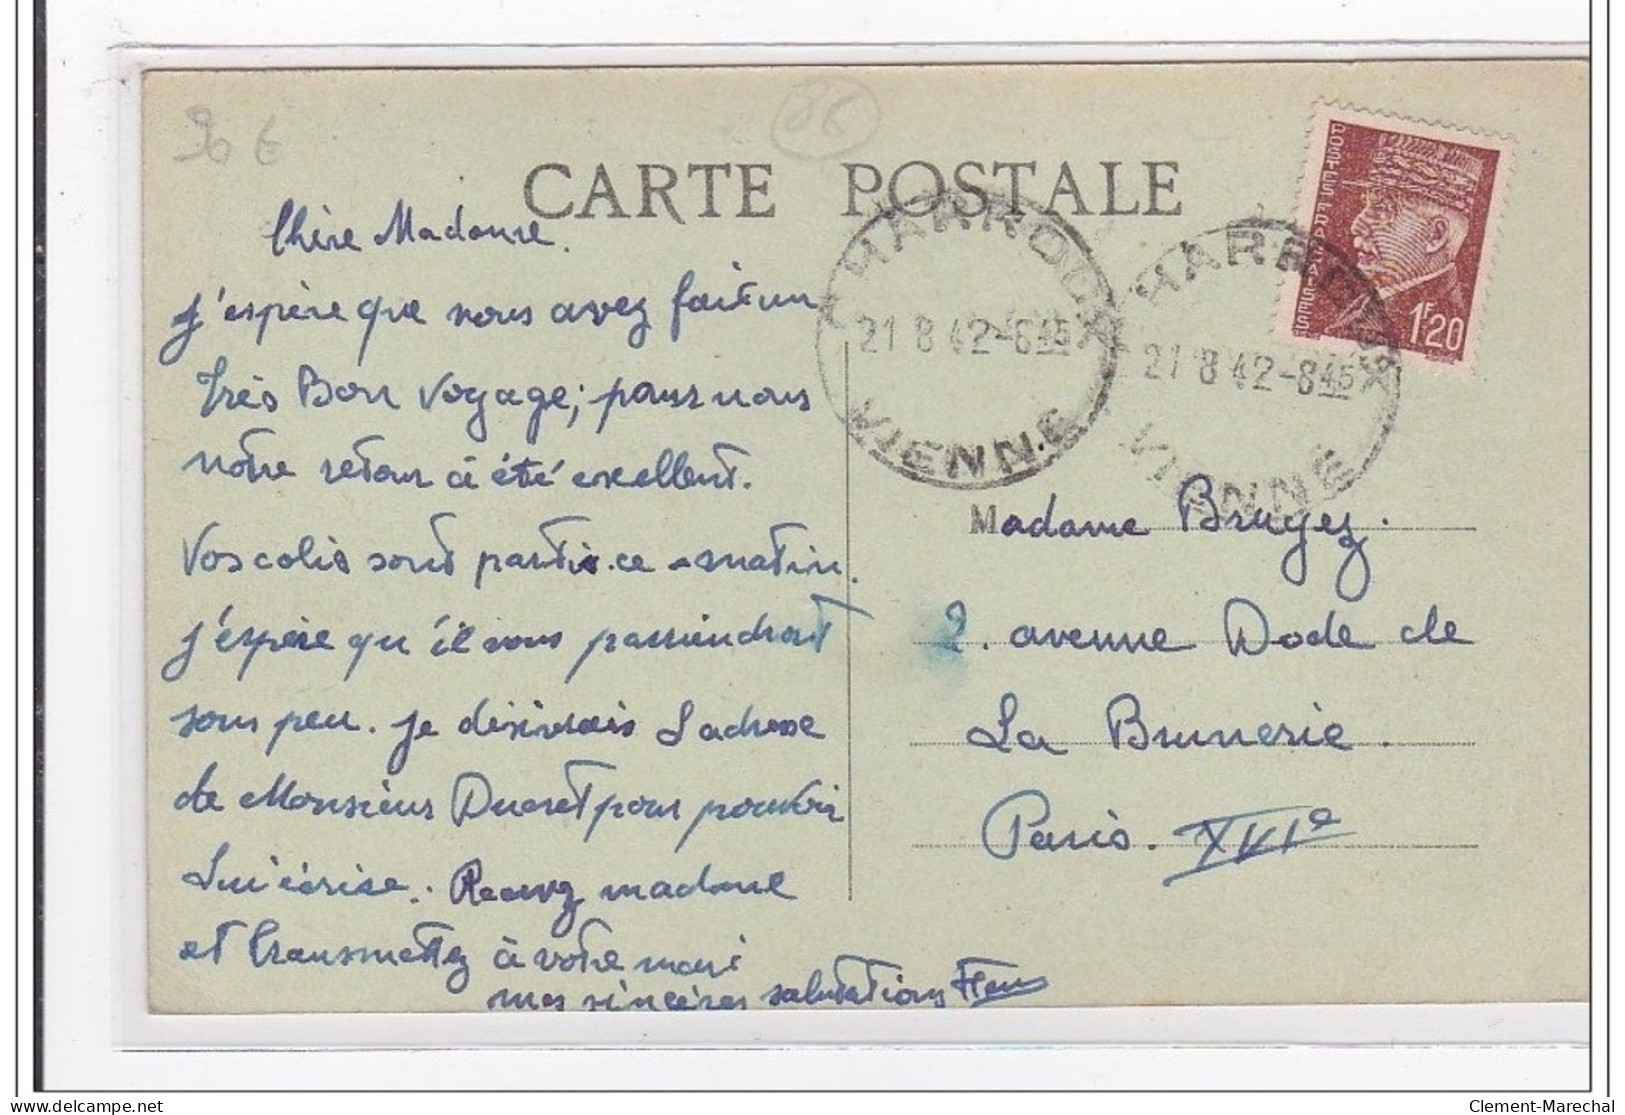 90 €
86
CARTE POSTALE
Chère Madame.
j'espère que vous avez fait un
très Bon voyage; pour nous
notre retour à été excellent.
Vos colis sont partis. ce matin.
j'espère qu'il vous parviendront
sous peu. je désirerais l'adresse
de Monsieur Ducret pour pouvoir
lui écrire. Recevez madame
et transmettez à votre mari
mes sincères salutations
HARROUX
21 8 42-845
VIENNE
HARROUX
21 8 42-845
VIENNE
POSTES FRANÇAISES
1F20
Madame Bruyez.
2. avenue Dode de
La Brunerie.
Paris. XVIe
Clement-Marechal